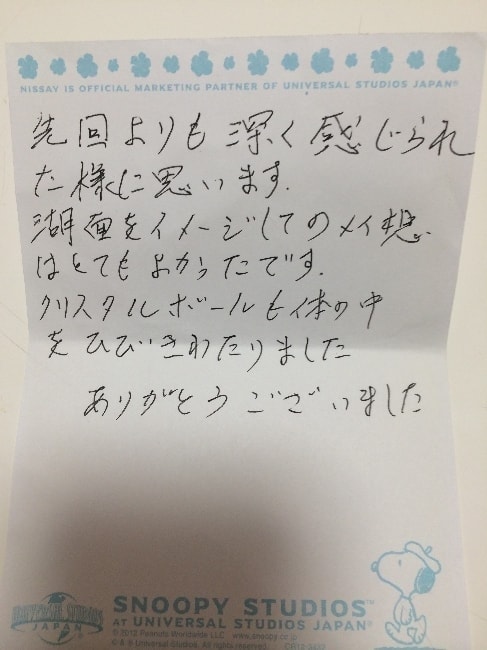 NISSAY IS OFFICIAL MARKETING PARTNER OF UNIVERSAL STUDIOS JAPAN®
先回よりも深く感じられ
た様に思います.
湖面をイメージしてのメイ想
はとてもよかったです.
クリスタルボールも体の中
をひびきわたりました
ありがとうございました
UNIVERSAL STUDIOS
JAPAN
SNOOPY STUDIOS™
AT UNIVERSAL STUDIOS JAPAN®
© 2012 Peanuts Worldwide LLC www.snoopy.co.jp